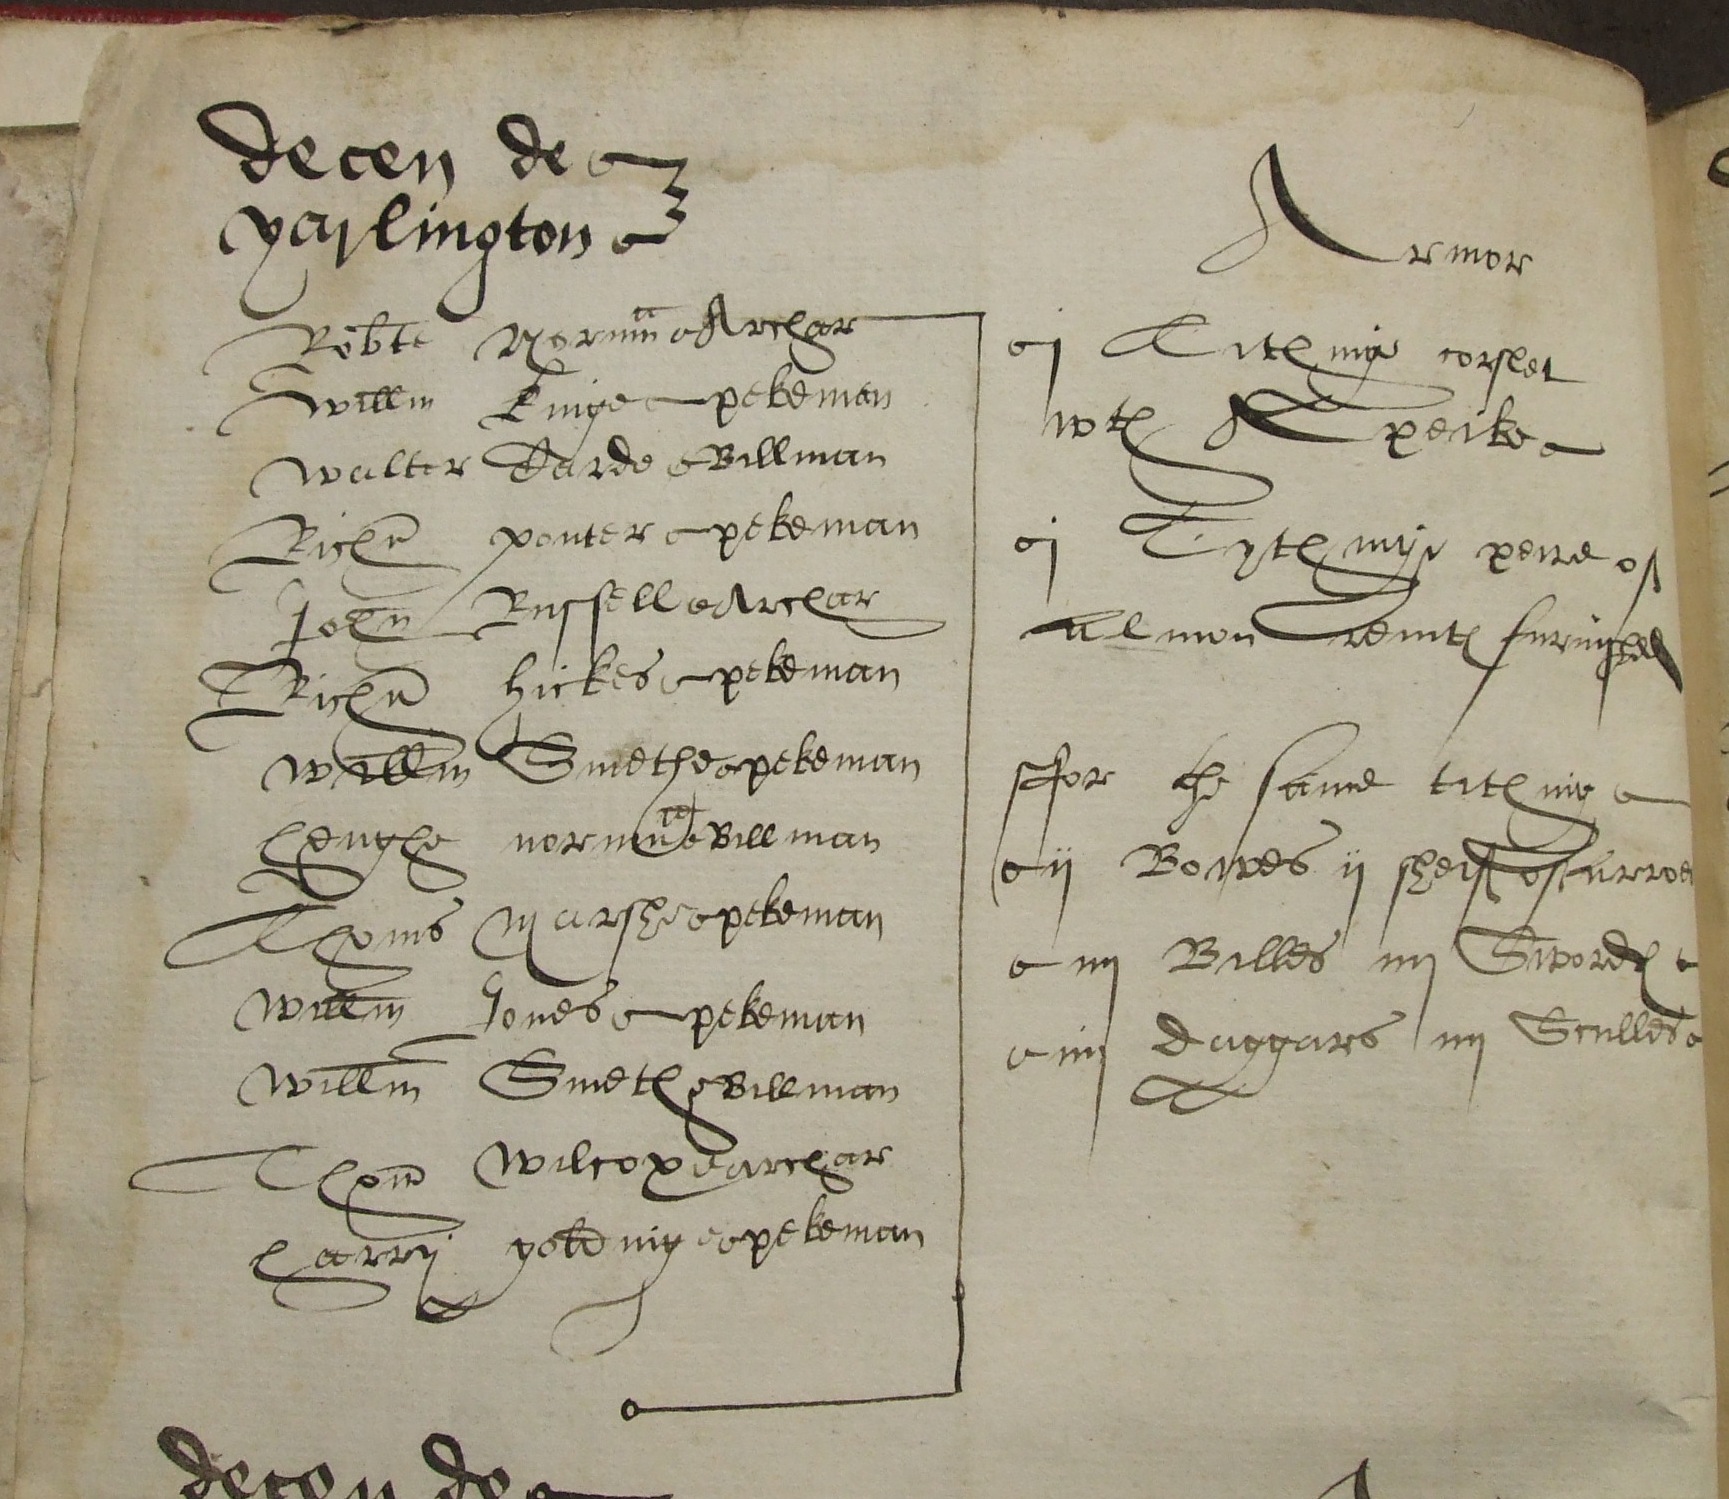 decen de
yarlington
Robte Normā Archar
Willm Kinge pekeman
Walter Carde Billman
Richū ponter pekeman
John Russell Archar
Richū hickes pekeman
Willm Smethe pekeman
hewghe normā Billman
Thoms Marshe pekeman
Willm Jones pekeman
Willm Smeth Billman
Thom Wilcox archar
harry goldnig pekeman
Armor
j Tithinge corslet
wth A peike
j Tythinge peire of
Almon revits furnished
ffor the same tithing
ij Bowes ij sheif of arroes
iiij Billes iiij Swords
iiij daggars iiij Sculles
decen de